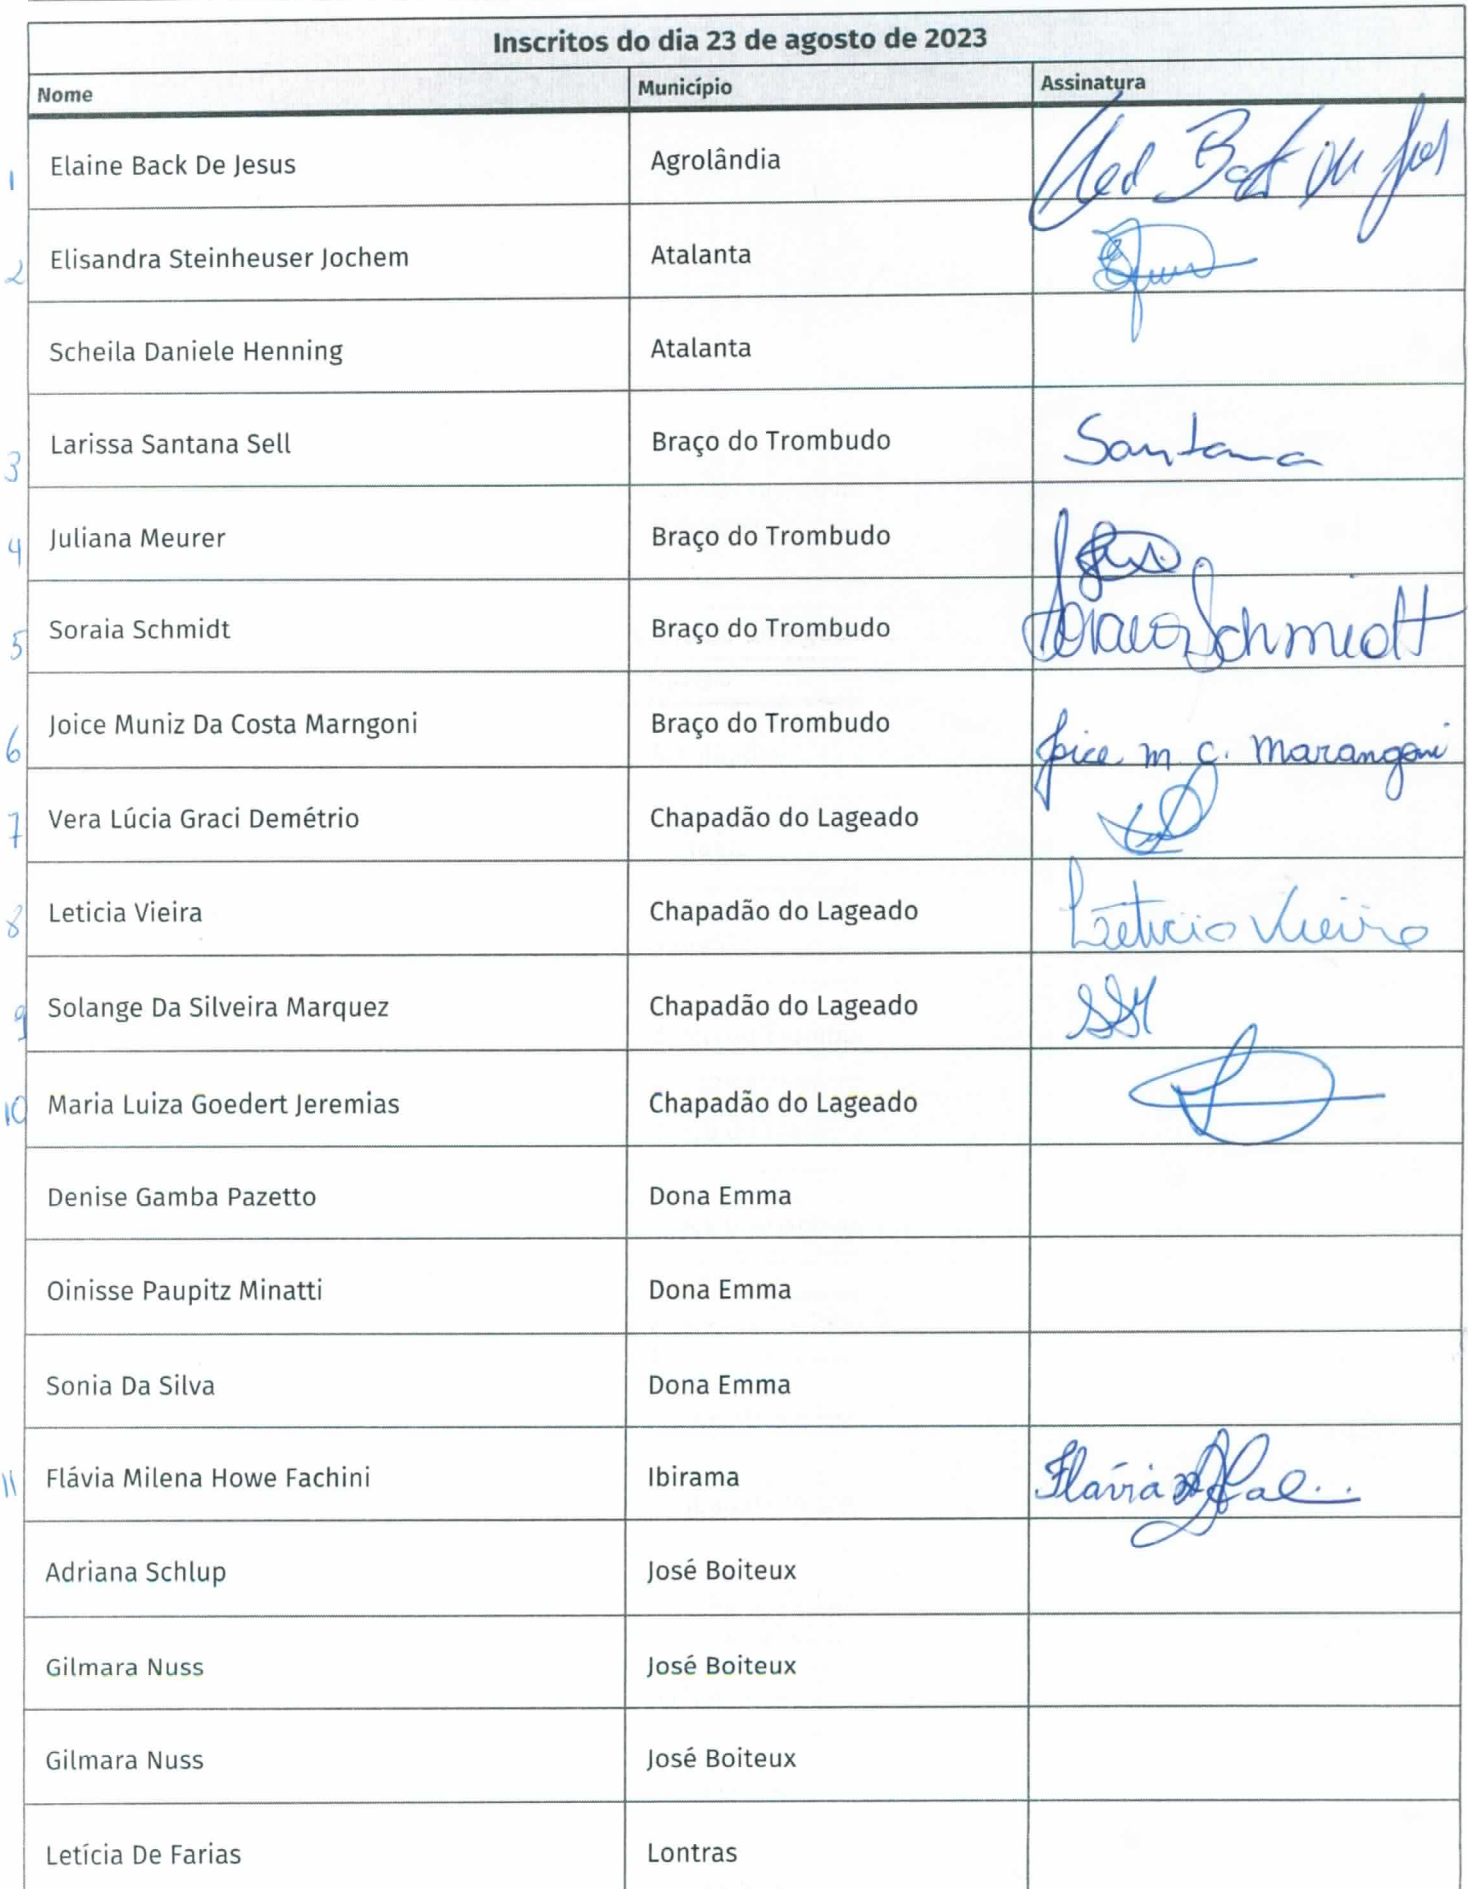 Inscritos do dia 23 de agosto de 2023
Nome Município Assinatura
1 Elaine Back De Jesus Agrolândia
2 Elisandra Steinheuser Jochem Atalanta
Scheila Daniele Henning Atalanta
3 Larissa Santana Sell Braço do Trombudo Santana
4 Juliana Meurer Braço do Trombudo
5 Soraia Schmidt Braço do Trombudo Soraia Schmidt
6 Joice Muniz Da Costa Marngoni Braço do Trombudo Joice m. C. Marangoni
7 Vera Lúcia Graci Demétrio Chapadão do Lageado
8 Leticia Vieira Chapadão do Lageado Leticia Vieira
9 Solange Da Silveira Marquez Chapadão do Lageado SSM
10 Maria Luiza Goedert Jeremias Chapadão do Lageado
Denise Gamba Pazetto Dona Emma
Oinisse Paupitz Minatti Dona Emma
Sonia Da Silva Dona Emma
11 Flávia Milena Howe Fachini Ibirama Flávia
Adriana Schlup José Boiteux
Gilmara Nuss José Boiteux
Gilmara Nuss José Boiteux
Letícia De Farias Lontras